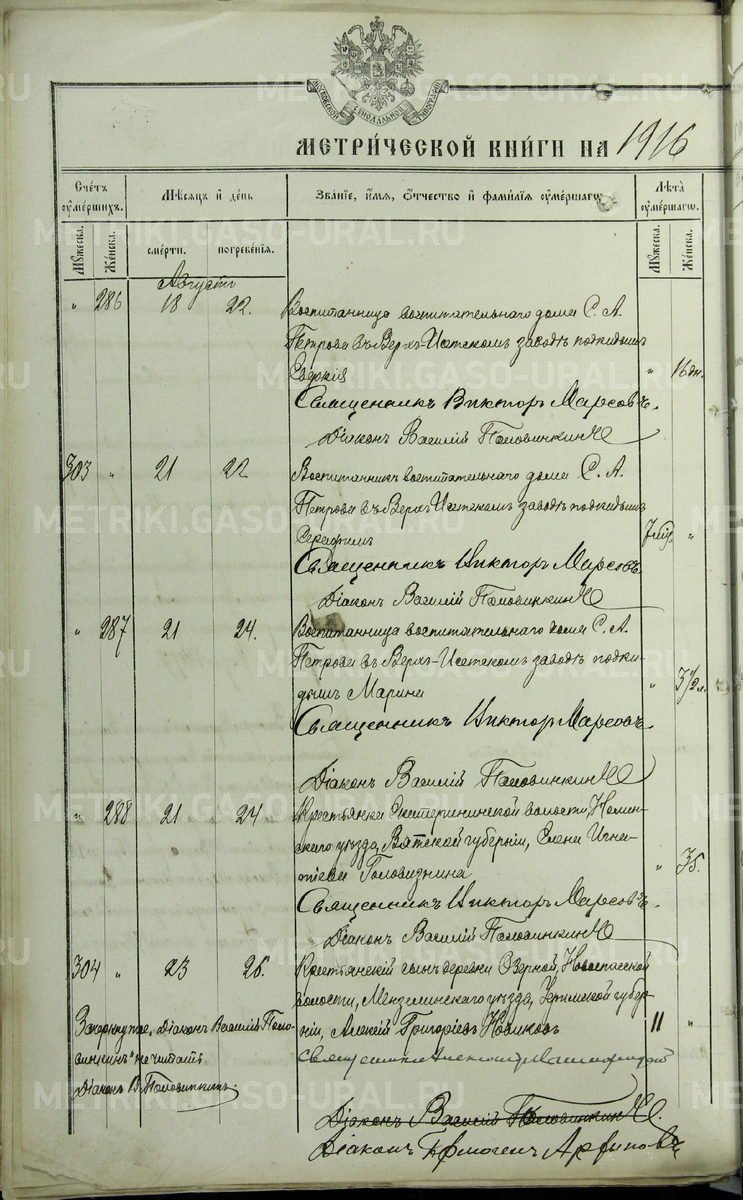 МОСКОВСКОЙ СѴНОДАЛЬНОЙ ТИПОГРАФІИ
МЕТРИ́ЧЕСКОЙ КНИ́ГИ НА 1916
Сче́тъ ᲂу҆ме́ршихъ.
Мѣ́сяцъ и҆ де́нь
Зва́нїе, и҆́мя, ѻ҆́тчество и҆ фами́лїя ᲂу҆ме́ршагѡ
Лѣ́та ᲂу҆ме́ршагѡ.
Мꙋ́жеска.
Же́нска.
сме́рти.
погребе́нїя.
Мꙋ́жеска.
Же́нска.
Августъ
" 286 18 22. Воспитанница воспитательнаго дома С. А.
Петрова въ Верхъ-Исетскомъ заводѣ подкидышъ
Евдокія " 16 дн.
Священникъ Викторъ Маресовъ.
Діаконъ Василій Половинкин
303 " 21 22 Воспитанникъ воспитательнаго дома С. А.
Петрова въ Верхъ-Исетскомъ заводѣ подкидышъ
Серафимъ "
Священникъ Викторъ Маресовъ
Діаконъ Василій Половинкин
" 287 21 24. Воспитанница воспитательнаго дома С. А.
Петрова въ Верхъ-Исетскомъ заводѣ подки-
дышъ Марина " 3½ м.
Священникъ Викторъ Маресовъ
Діаконъ Василій Половинкин
" 288 21 24 Крестьянка Екатерининской волости, Нолин-
скаго уѣзда, Вятской губерніи, Елена Игна-
тіева " 35.
Священникъ Викторъ Маресовъ.
Діаконъ Василій Половинкин
304 " 23 26. Крестьянскій сынъ деревни Озерной, Новоспасской
волости, Мензелинскаго уѣзда, губер-
ніи, Алексій Григоріевъ Новиковъ 11 "
Зачеркнутое „Діаконъ Василій Поло-
винкинъ" не читать
Діаконъ В. Половинкинъ.
Діаконъ Василій Половинкин.
Діаконъ Ермогенъ
METRIKI.GASO-URAL.RU